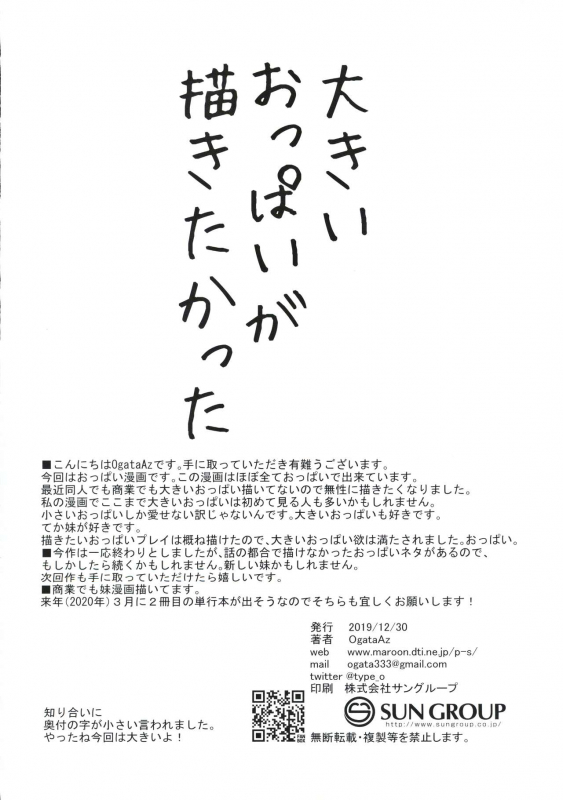 大きい
おっぱいが
描きたかった
■こんにちはOgataAzです。手に取っていただき有難うございます。
今回はおっぱい漫画です。この漫画はほぼ全ておっぱいで出来ています。
最近同人でも商業でも大きいおっぱい描いてないので無性に描きたくなりました。
私の漫画でここまで大きいおっぱいは初めて見る人も多いかもしれません。
小さいおっぱいしか愛せない訳じゃないんです。大きいおっぱいも好きです。
てか妹が好きです。
描きたいおっぱいプレイは概ね描けたので、大きいおっぱい欲は満たされました。おっぱい。
■今作は一応終わりとしましたが、話の都合で描けなかったおっぱいネタがあるので、
もしかしたら続くかもしれません。新しい妹かもしれません。
次回作も手に取っていただけたら嬉しいです。
■商業でも妹漫画描いてます。
来年(2020年)3月に2冊目の単行本が出そうなのでそちらも宜しくお願いします!
発行 2019/12/30
著者 OgataAz
web www.maroon.dti.ne.jp/p-s/
mail ogata333@gmail.com
twitter @type_o
印刷 株式会社サングループ
SUN GROUP
http://www.sungroup.co.jp/
無断転載・複製等を禁止します。
知り合いに
奥付の字が小さい言われました。
やったね今回は大きいよ!